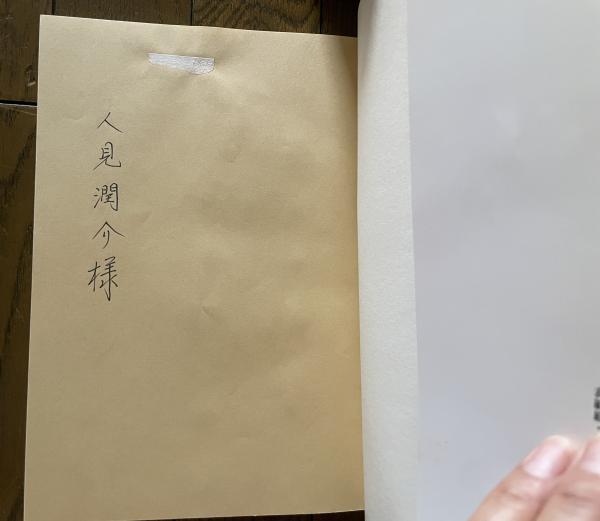 人見潤介様